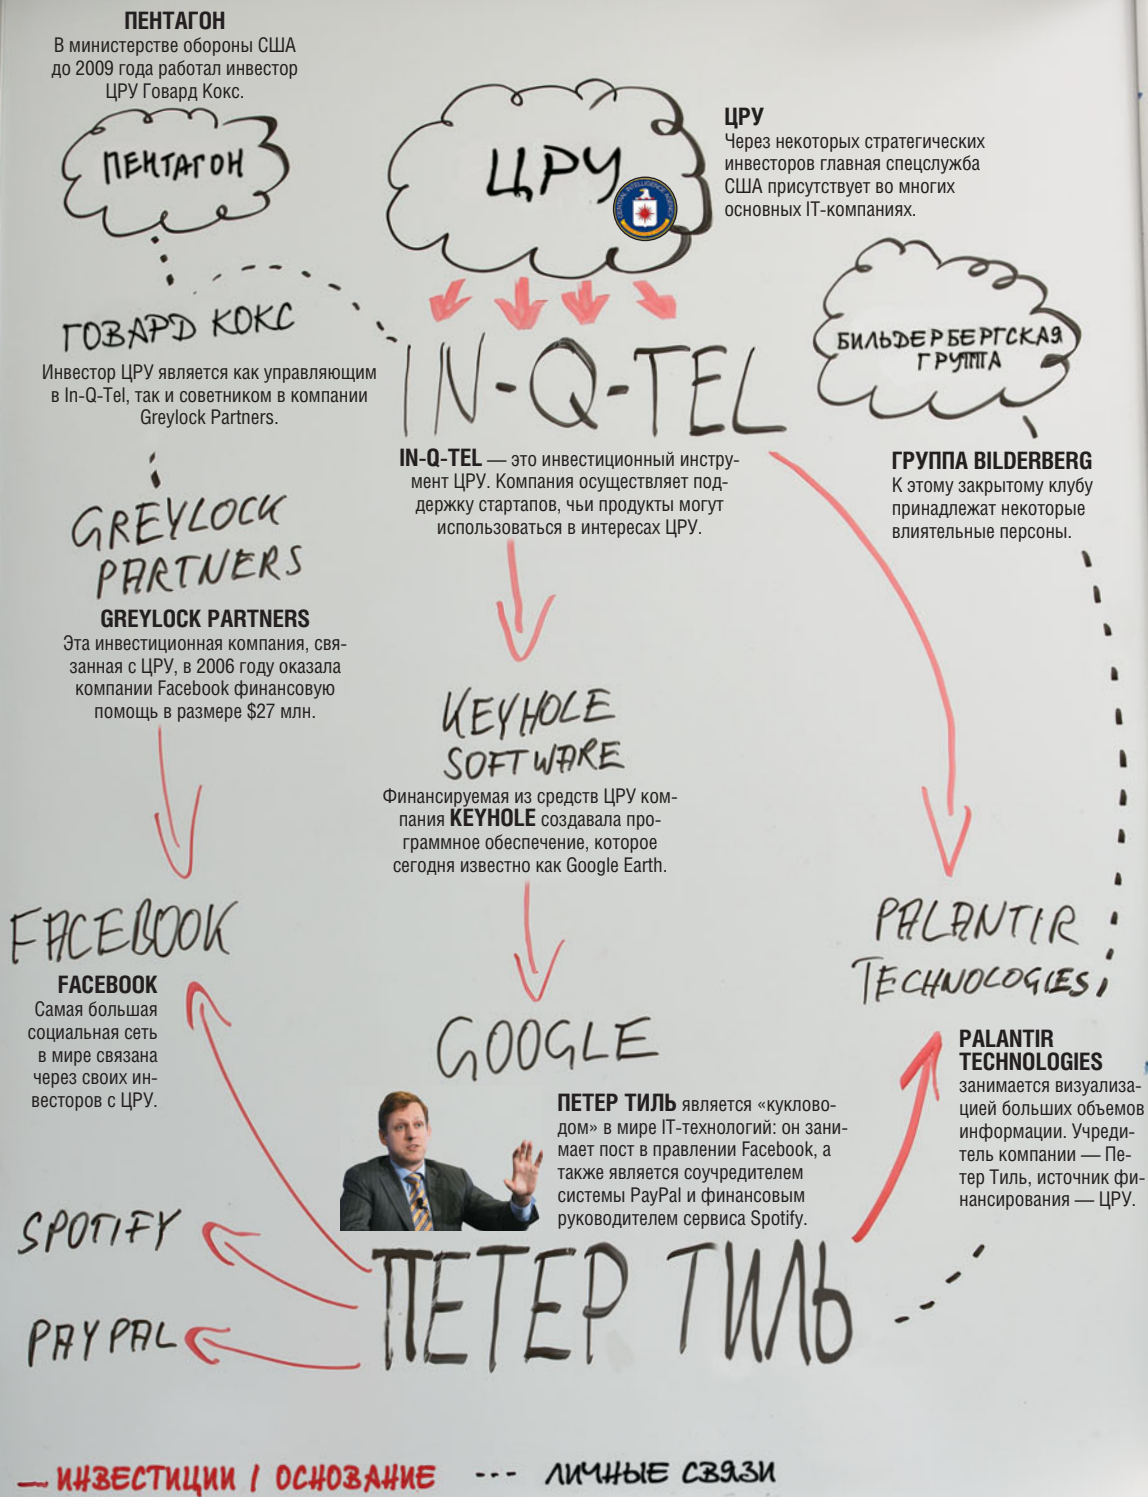 ПЕНТАГОН
В министерстве обороны США
до 2009 года работал инвестор
ЦРУ Говард Кокс.
ПЕНТАГОН
ЦРУ
CENTRAL INTELLIGENCE AGENCY
ЦРУ
Через некоторых стратегических
инвесторов главная спецслужба
США присутствует во многих
основных IT-компаниях.
ГОВАРД КОКС
Инвестор ЦРУ является как управляющим
в In-Q-Tel, так и советником в компании
Greylock Partners.
IN-Q-TEL
IN-Q-TEL — это инвестиционный инстру-
мент ЦРУ. Компания осуществляет под-
держку стартапов, чьи продукты могут
использоваться в интересах ЦРУ.
БИЛЬДЕРБЕРГСКАЯ
ГРУППА
ГРУППА BILDERBERG
К этому закрытому клубу
принадлежат некоторые
влиятельные персоны.
GREYLOCK
PARTNERS
GREYLOCK PARTNERS
Эта инвестиционная компания, свя-
занная с ЦРУ, в 2006 году оказала
компании Facebook финансовую
помощь в размере $27 млн.
KEYHOLE
SOFTWARE
Финансируемая из средств ЦРУ ком-
пания KEYHOLE создавала про-
граммное обеспечение, которое
сегодня известно как Google Earth.
FACEBOOK
FACEBOOK
Самая большая
социальная сеть
в мире связана
через своих ин-
весторов с ЦРУ.
GOOGLE
PALANTIR
TECHNOLOGIES
PALANTIR
TECHNOLOGIES
занимается визуализа-
цией больших объемов
информации. Учреди-
тель компании — Пе-
тер Тиль, источник фи-
нансирования — ЦРУ.
ПЕТЕР ТИЛЬ является «куклово-
дом» в мире IT-технологий: он зани-
мает пост в правлении Facebook, а
также является соучредителем
системы PayPal и финансовым
руководителем сервиса Spotify.
SPOTIFY
PAYPAL
ПЕТЕР ТИЛЬ
— ИНВЕСТИЦИИ / ОСНОВАНИЕ
--- ЛИЧНЫЕ СВЯЗИ